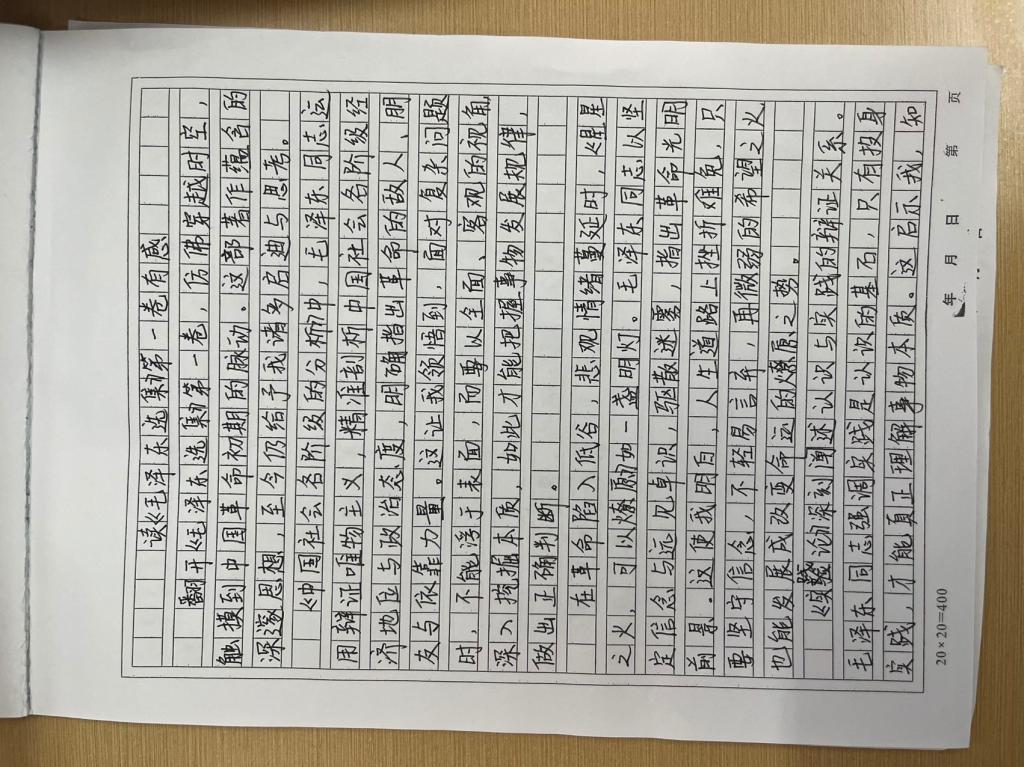 读《毛泽东选集》第一卷有感
翻开《毛泽东选集》第一卷，仿佛穿越时空，
触摸到中国革命初期的脉动。这部著作蕴含的
深邃思想，至今仍给予我诸多启迪与思考。
《中国社会各阶级的分析》中，毛泽东同志运
用辩证唯物主义，精准剖析中国社会各阶级经
济地位与政治态度，明确指出革命的敌人、朋
友与依靠力量。这让我领悟到，面对复杂问题
时，不能浮于表面，而要以全面、客观的视角
深入挖掘本质，如此才能把握事物发展规律，
做出正确判断。
在革命陷入低谷，悲观情绪蔓延时，《星星
之火，可以燎原》如一盏明灯。毛泽东同志以坚
定信念与远见卓识，驱散迷雾，指出革命光明
前景。这使我明白，人生道路上挫折难免，只
要坚守信念，不轻易言弃，再微弱的希望之火
也能发展成改变命运的燎原之势。
《实践论》深刻阐述认识与实践的辩证关系。
毛泽东同志强调实践是认识的基石，只有投身
实践，才能真正理解事物本质。这启示我，知
20×20=400
年 月 日 第 页